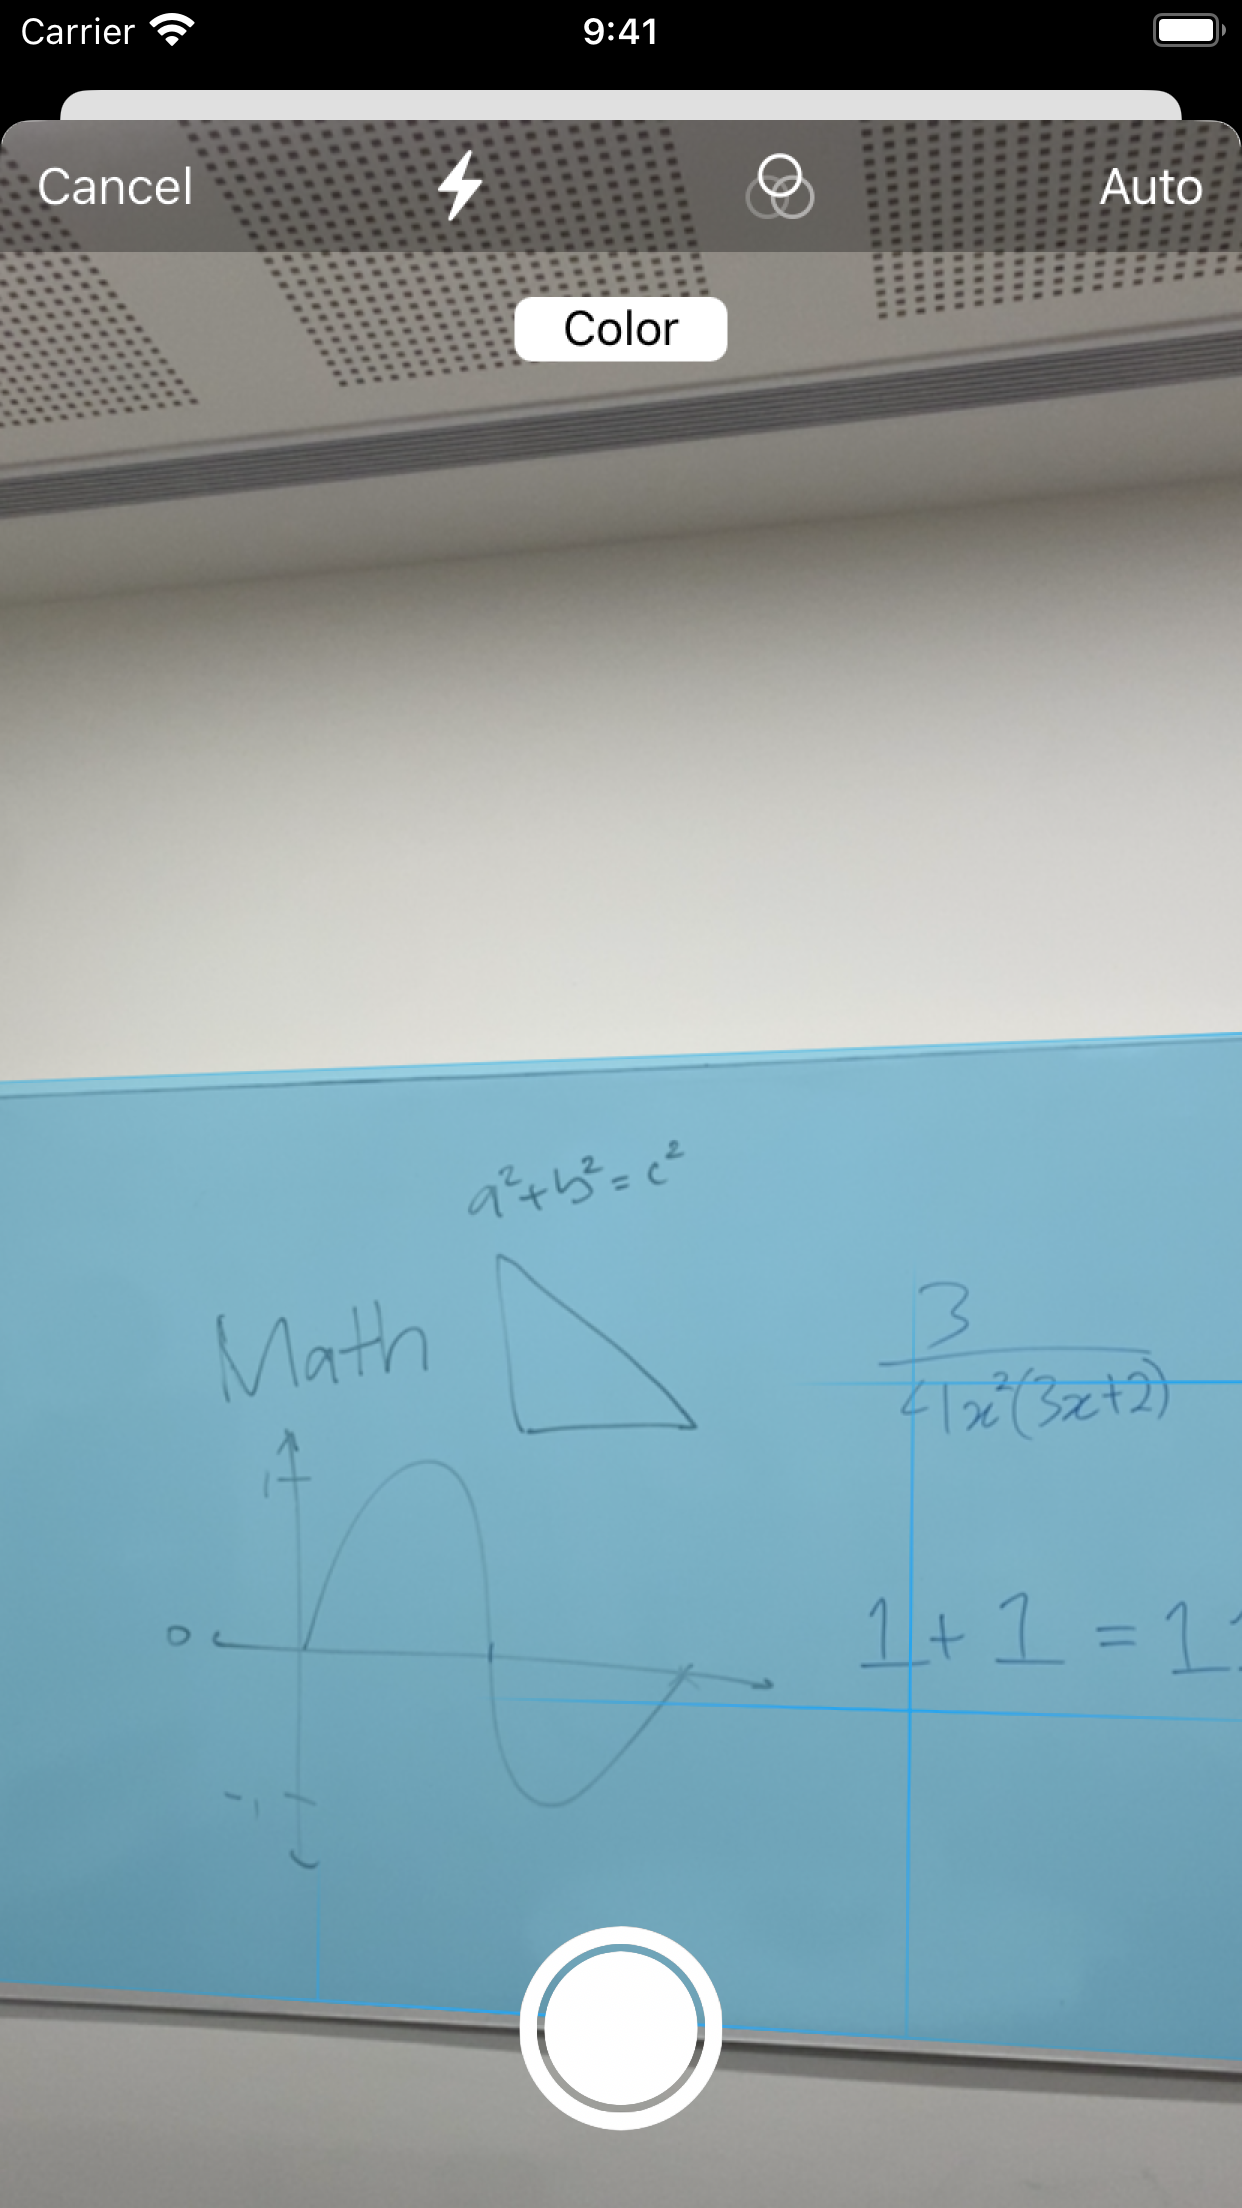 Carrier 9:41
Cancel Auto
Color
a²+b²=c²
Math
3
41x²(3x+2)
1
0
1+1=11
-1